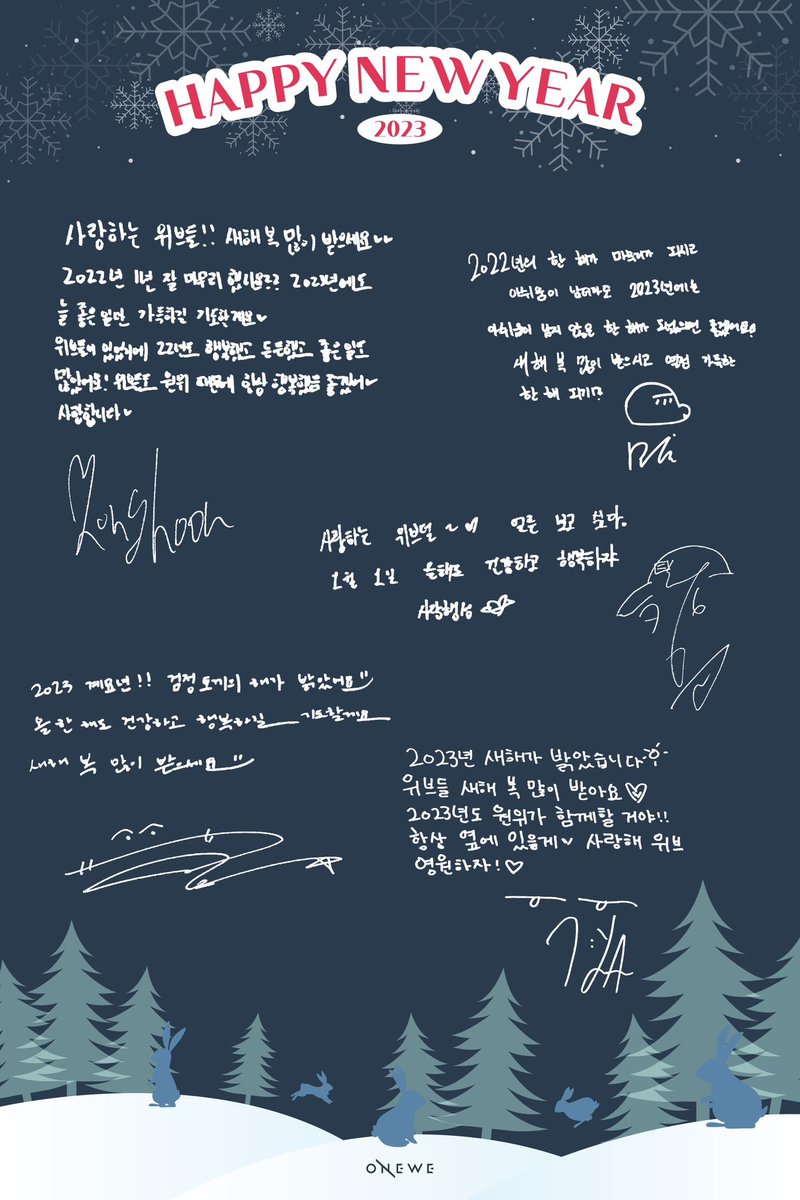 HAPPY NEW YEAR
2023
사랑하는 위브들!! 새해 복 많이 받으세요
2022년 1년 잘 마무리 했나요?? 2023년에도
늘 좋은일만 가득하길 기도할게요♥
위브들이 있었기에 22년도 행복했고 든든했고 좋은일도
많았어요! 위브들도 원위 때문에 항상 행복했음 좋겠어♥
사랑합니다♥
Yonghoon
2022년의 한 해가 마무리가 되시고
아쉬움이 남더라도 2023년에는
아쉬움이 남지 않는 한 해가 되셨으면 좋겠어요
새해 복 많이 받으시고 열정 가득한
한 해 되기?
사랑하는 위브덜~♥ 얼른 보고 싶다.
1월 1일 올해도 건강하고 행복하자
사랑행성
2023 계묘년!! 검정토끼의 해가 밝았어요
올 한 해도 건강하고 행복하길 기도할게요
새해 복 많이 받으세요
2023년 새해가 밝았습니다
위브들 새해 복 많이 받아요♡
2023년도 원위가 함께할 거야!!
항상 옆에 있을게♥ 사랑해 위브
영원하자!♡
ONEWE